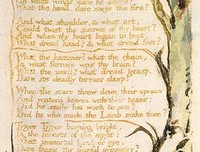 On what wings dare he aspire?
What the hand, dare sieze the fire?
And what shoulder, & what art,
Could twist the sinews of thy heart?
And when thy heart began to beat,
What dread hand? & what dread feet?
What the hammer? what the chain,
In what furnace was thy brain?
What the anvil? what dread grasp,
Dare its deadly terrors clasp?
When the stars threw down their spears
And water'd heaven with their tears:
Did he smile his work to see?
Did he who made the Lamb make thee?
Tyger Tyger burning bright,
In the forests of the night:
What immortal hand or eye,